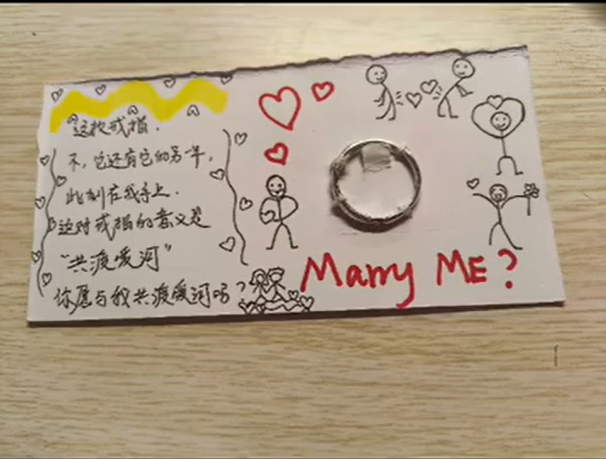 这枚戒指.
不,它还有它的另一半,
此刻在我手上.
这对戒指的意义是
“共渡爱河”
你愿与我共渡爱河吗?
Marry ME?